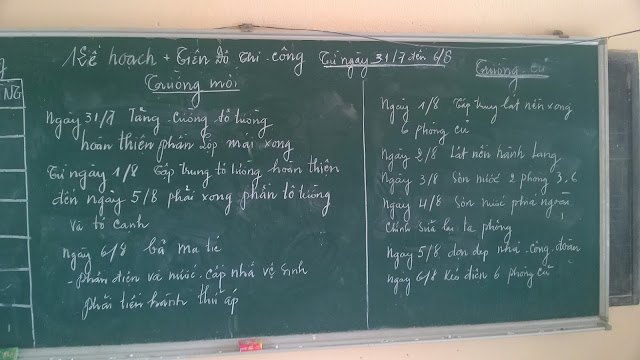 Kế hoạch + Tiến Độ Thi công Từ ngày 31/7 đến 6/8
Trường mới
Ngày 31/7 Tăng cường tô tường
hoàn thiện phần lợp mái xong
Từ ngày 1/8 Tập trung tô tường hoàn thiện
đến ngày 5/8 phải xong phần tô tường
và tô cạnh
Ngày 6/8 bả ma tít
- phần điện và nước cấp nhà vệ sinh
phải tiến hành thử áp
Trường cũ
Ngày 1/8 Tập trung lát nền xong
6 phòng cũ
Ngày 2/8 Lát nền hành lang
Ngày 3/8 Sơn nước 2 phòng 3, 6
Ngày 4/8 Sơn nước phía ngoài
Chỉnh sửa lại la phông
Ngày 5/8 dọn dẹp nhà công đoàn
Ngày 6/8 Kéo điện 6 phòng cũ
NG